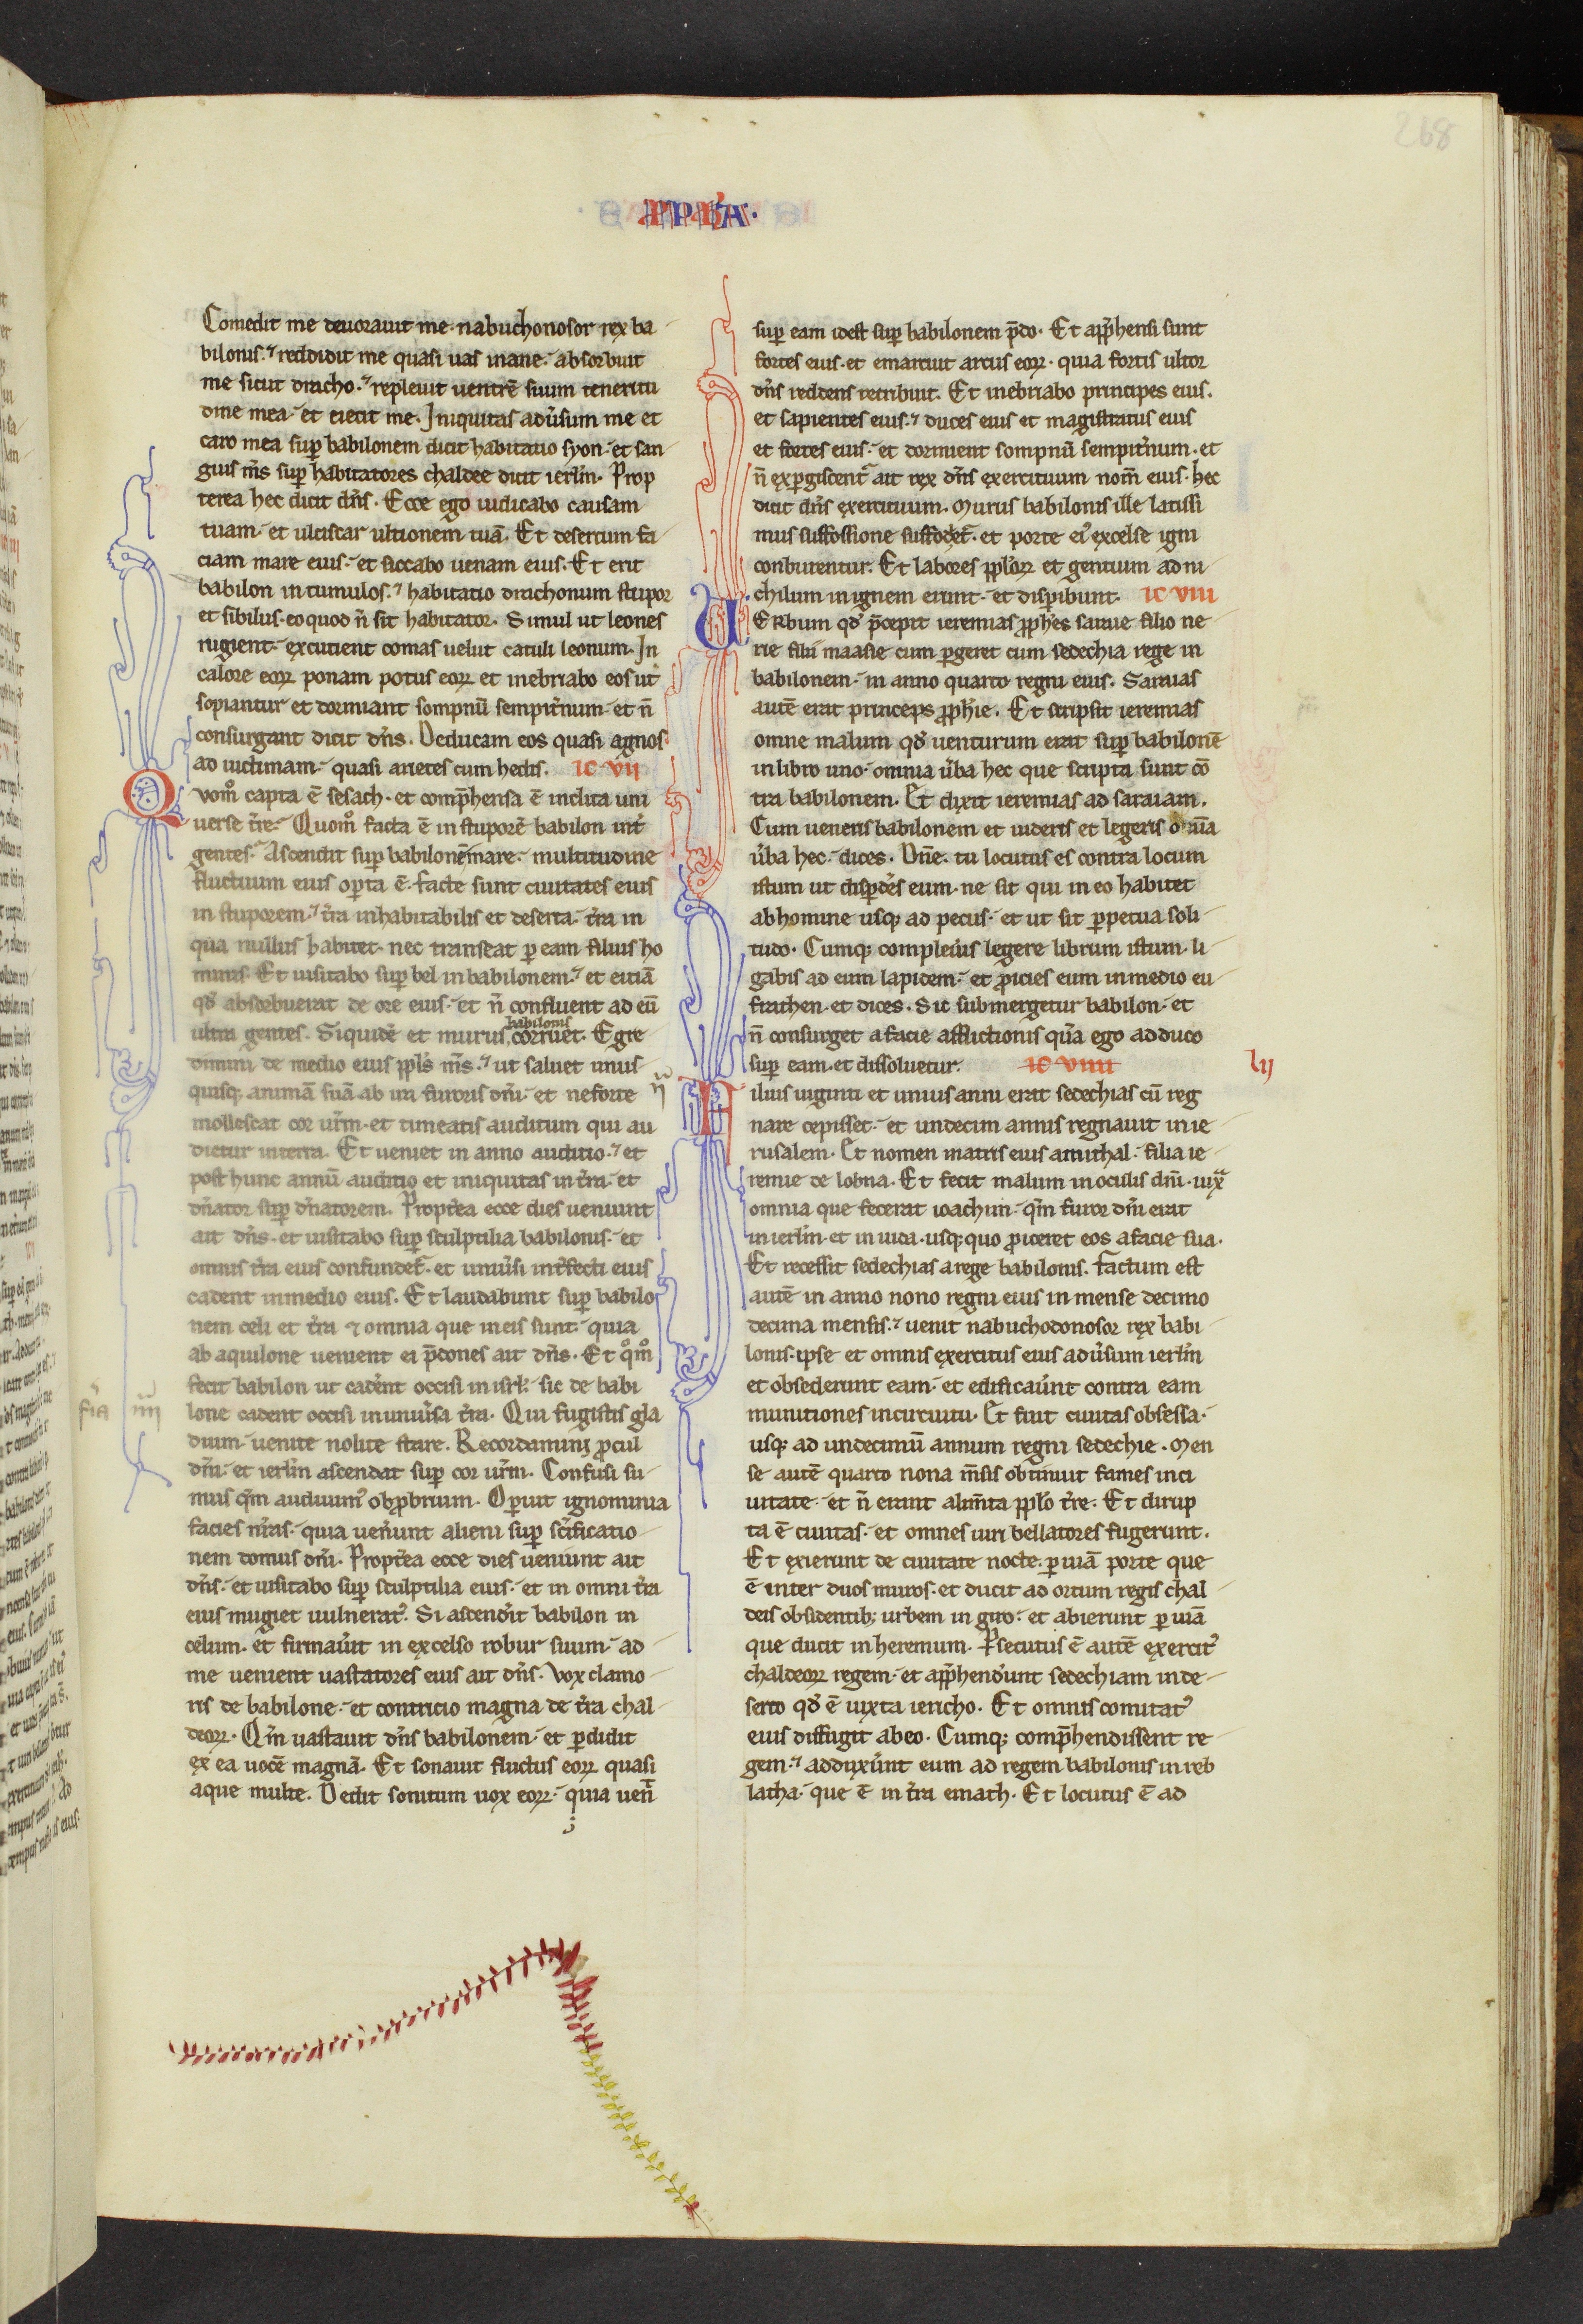 268
PPH̄A·
Comedit me deuorauit me· nabuchonosor rex ba
bilonis· ⁊ reddidit me quasi uas inane· absorbuit
me sicut dracho· ⁊ repleuit uentrē suum teneritu
dine mea· et eiecit me. Iniquitas adūsum me et
caro mea sup̄ babilonem dicit habitatio syon· et san
guis m̄s sup̄ habitatores chaldee dicit ierl̄m· Prop
terea hec dicit dn̄s· Ecce ego iudicabo causam
tuam· et ulciscar ultionem tuā· Et desertum fa
ciam mare eius· et siccabo uenam eius· Et erit
babilon in tumulos· ⁊ habitatio drachonum stupor
et sibilus· eo quod n̄ sit habitator· Simul ut leones
rugient· excutient comas uelut catuli leonum· In
calore eoꝝ ponam potus eoꝝ et inebriabo eos ut
sopiantur et dormiant sompnū sempit̄num· et n̄
consurgant dicit dn̄s· Deducam eos quasi agnos
ad uictimam· quasi arietes cum hedis. ic vii
Qvom̊ capta ē sesach· et comp̄hensa ē inclita uni
uerse tr̄e· Quom̊ facta ē in stuporē babilon int̄
gentes· Ascendit sup̄ babilonē mare· multitudine
fluctuum eius op̄ta ē· facte sunt ciuitates eius
in stuporem· ⁊ tr̄a inhabitabilis et deserta· tr̄a in
qua nullus habitet· nec transeat ꝑ eam filius ho
minis· Et uisitabo sup̄ bel in babilonem· ⁊ et eiciā
qd̄ absorbuerat de ore eius· et n̄ confluent ad eū
ultra gentes· Siquidē et murus babilonis corruet· Egre
dimini de medio eius ppl̄s m̄s· ⁊ ut saluet unus
quisq; animā suā ab ira furoris dn̄i· et ne forte
mollescat cor ur̄m· et timeatis auditum qui au
dietur in terra· Et ueniet in anno auditio· ⁊ et
post hunc annū auditio et iniquitas in tr̄a· et
dn̄ator sup̄ dn̄atorem· Propt̄ea ecce dies ueniunt
ait dn̄s· et uisitabo sup̄ sculptilia babilonis· et
omnis tr̄a eius confundet̄· et uniūsi int̄fecti eius
cadent in medio eius· Et laudabunt sup̄ babilo
nem celi et tr̄a ⁊ omnia que in eis sunt· quia
ab aquilone uenient ei p̄dones ait dn̄s· Et q̊m̊
fecit babilon ut cadēnt occisi in isrl̄· sic de babi
lone cadent occisi in uniūsa tr̄a· Qui fugistis gla
dium· uenite nolite stare· Recordamini ꝓcul
dn̄i· et ierl̄m ascendat sup̄ cor ur̄m· Confusi su
mus qm̄ audiuim᷒ obp̄brium· Oꝑuit ignominia
facies nr̄as· quia uen̄unt alieni sup̄ sc̄ificatio
nem domus dn̄i· Propt̄ea ecce dies ueniunt ait
dn̄s· et uisitabo sup̄ sculptilia eius· et in omni tr̄a
eius mugiet uulnerat᷒· Si ascend̄it babilon in
celum· et firmaūit in excelso robur suum· ad
me uenient uastatores eius ait dn̄s· Vox clamo
ris de babilone· et contricio magna de tr̄a chal
deoꝝ· Qm̄ uastauit dn̄s babilonem· et ꝑdidit
ex ea uocē magnā· Et sonauit fluctus eoꝝ quasi
aque multe· Dedit sonitum uox eoꝝ· quia uen̄
sup̄ eam idest sup̄ babilonem p̄do· Et app̄hensi sunt
fortes eius· et emarcuit arcus eoꝝ· quia fortis ultor
dn̄s reddens retribuit· Et inebriabo principes eius·
et sapientes eius· ⁊ duces eius et magistratus eius
et fortes eius· et dormient sompnū sempit̄num· et
n̄ exꝑgiscent̄ ait rex dn̄s exercituum nom̄ eius· hec
dicit dn̄s exercituum· Murus babilonis ille latissi
mus suffossione suffodiet̄· et porte ei᷒ excelse igni
conburentur· Et labores ppl̄oꝝ et gentium ad ni
chilum in ignem erunt· et disꝑibunt· ic viii
UErbum qd̄ p̄cepit ieremias ꝓph̄es saraie filio ne
rie filii maasie cum ꝑgeret cum sedechia rege in
babilonem· in anno quarto regni eius· Saraias
autē erat princeps ꝓph̄ie· Et scripsit ieremias
omne malum qd̄ uenturum erat sup̄ babilonē
in libro uno· omnia ūba hec que scripta sunt cō
tra babilonem· Et dixit ieremias ad saraiam·
Cum ueneris babilonem et uideris et legeris om̄ia
ūba hec· dices· Dn̄e· tu locutus es contra locum
istum ut disp̄des eum· ne sit qui in eo habitet
ab homine usq; ad pecus· et ut sit ꝑpetua soli
tudo· Cumq; compleūis legere librum istum· li
gabis ad eum lapidem· et ꝓicies eum in medio eu
frathen· et dices· Sic submergetur babilon· et
n̄ consurget a facie afflictionis quā ego adduco
sup̄ eam· et dissoluetur· ic viiii
lij
Filius uiginti et unius anni erat sedechias cū reg
nare cepisset· et undecim annis regnauit in ie
rusalem· Et nomen matris eius amithal· filia ie
remie de lobna· Et fecit malum in oculis dn̄i· iuxᵃ
omnia que fecerat ioachim· qm̄ furor dn̄i erat
in ierl̄m· et in iuda· usq; quo ꝓiceret eos a facie sua·
Et recessit sedechias a rege babilonis· factum est
autē in anno nono regni eius in mense decimo
decima mensis· ⁊ uenit nabuchodonosor rex babi
lonis· ipse et omnis exercitus eius adūsum ierl̄m
et obsederunt eam· et edificaūnt contra eam
munitiones in circuitu· Et fuit ciuitas obsessa·
usq; ad undecimū annum regni sedechie· Men
se autē quarto nona m̄sis obtinuit fames in ci
uitate· et n̄ erant alim̄ta ppl̄o tr̄e· Et dirup
ta ē ciuitas· et omnes uiri bellatores fugerunt·
Et exierunt de ciuitate nocte· ꝑ uiā porte que
ē inter duos muros· et ducit ad ortum regis chal
deis obsidentib; urbem in giro· et abierunt ꝑ uiā
que ducit in heremum· Ꝑsecutus ē autē exercit᷒
chaldeoꝝ regem· et app̄hend̄unt sedechiam in de
serto qd̄ ē iuxta iericho· Et omnis comitat᷒
eius diffugit ab eo· Cumq; comp̄hendissent re
gem· ⁊ adduxūnt eum ad regem babilonis in reb
latha· que ē in tr̄a emath· Et locutus ē ad
fīa iiii